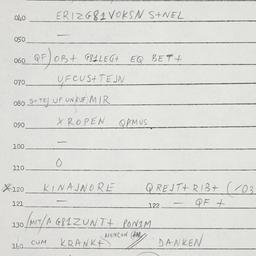 040 ERIZG81VOKSN S+NEL
050 —
060 QF) OB+ G81LEG+ EQ BET+
070 UFCUS+TEJN
080 S+TEJ UF UNRUF/MIR
090 XROPEN QPMUS
100 —
110 O
120 KINAJNORE QREJT+RIB+ (/03
121 — 122 — QF +
130 /MIT/A G81ZUNT+ PON1M
140 CUM KRANK+ DANKEN